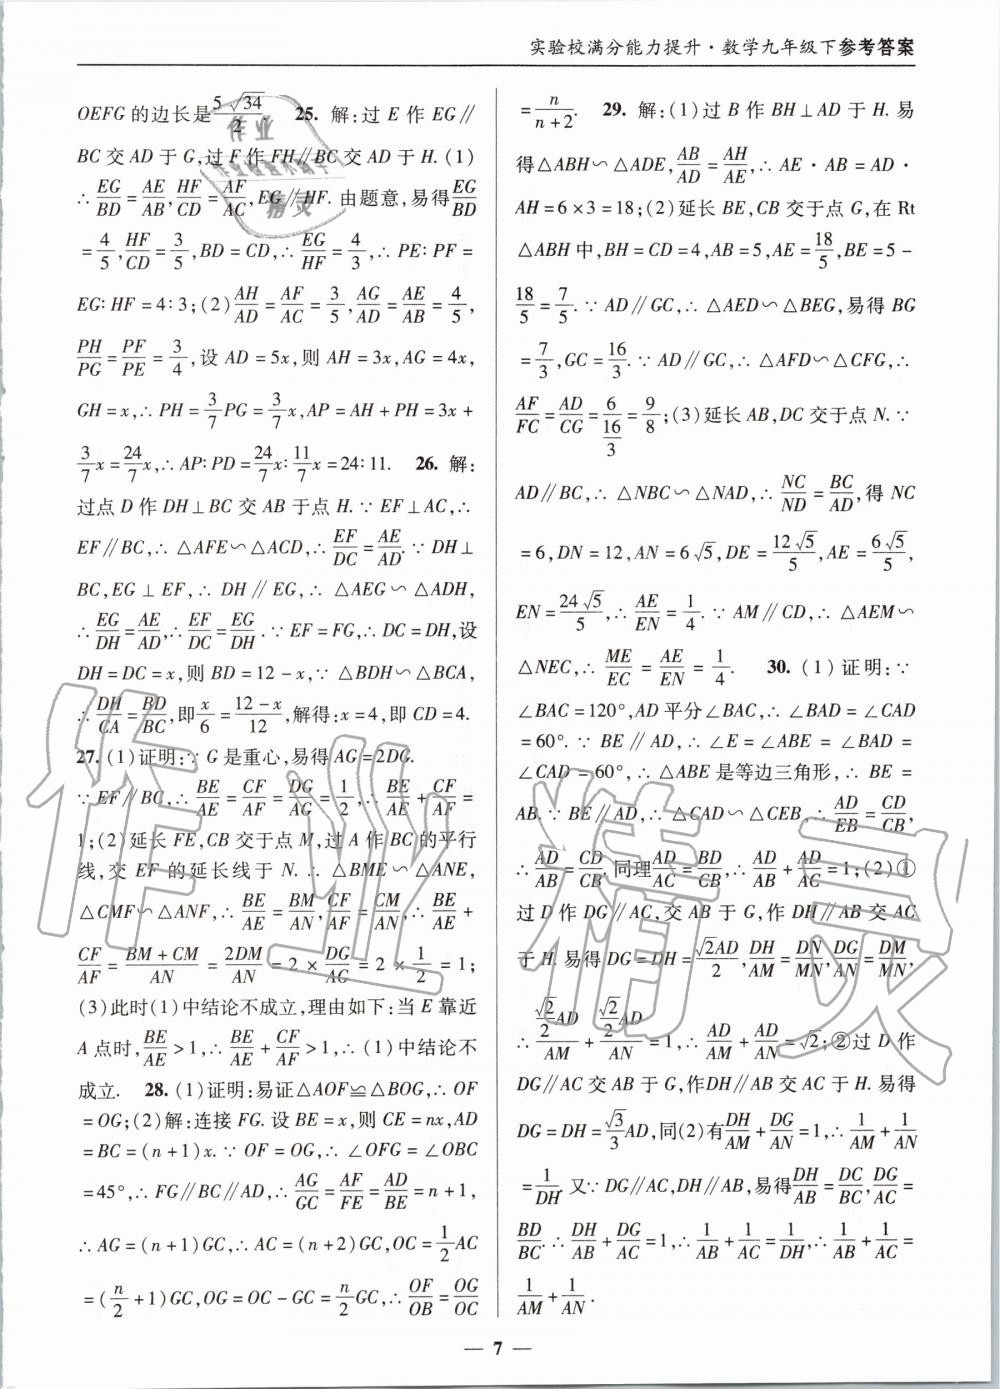 实验校满分能力提升·数学九年级下参考答案
OEFG 的边长是 5√34/2. 25. 解:过 E 作 EG∥
BC 交 AD 于 G,过 F 作 FH∥BC 交 AD 于 H. (1)
∴ EG/BD = AE/AB, HF/CD = AF/AC, EG∥HF. 由题意,易得 EG/BD
= 4/5, HF/CD = 3/5, BD = CD, ∴ EG/HF = 4/3, ∴ PE∶PF =
EG∶HF = 4∶3; (2) AH/AD = AF/AC = 3/5, AG/AD = AE/AB = 4/5,
PH/PG = PF/PE = 3/4, 设 AD = 5x, 则 AH = 3x, AG = 4x,
GH = x, ∴ PH = 3/7 PG = 3/7 x, AP = AH + PH = 3x +
3/7 x = 24/7 x, ∴ AP∶PD = 24/7 x∶11/7 x = 24∶11. 26. 解:
过点 D 作 DH⊥BC 交 AB 于点 H. ∵ EF⊥AC, ∴
EF∥BC, ∴ △AFE∽△ACD, ∴ EF/DC = AE/AD. ∵ DH⊥
BC, EG⊥EF, ∴ DH∥EG, ∴ △AEG∽△ADH,
∴ EG/DH = AE/AD, ∴ EF/DC = EG/DH. ∵ EF = FG, ∴ DC = DH, 设
DH = DC = x, 则 BD = 12 - x, ∵ △BDH∽△BCA,
∴ DH/CA = BD/BC, 即 x/6 = (12 - x)/12, 解得: x = 4, 即 CD = 4.
27. (1)证明: ∵ G 是重心, 易得 AG = 2DG.
∵ EF∥BC, ∴ BE/AE = CF/AF = DG/AG = 1/2, ∴ BE/AE + CF/AF =
1; (2)延长 FE, CB 交于点 M, 过 A 作 BC 的平行
线, 交 EF 的延长线于 N. ∴ △BME∽△ANE,
△CMF∽△ANF, ∴ BE/AE = BM/AN, CF/AF = CM/AN, ∴ BE/AE +
CF/AF = (BM + CM)/AN = 2DM/AN = 2 × DG/AG = 2 × 1/2 = 1;
(3)此时(1)中结论不成立, 理由如下: 当 E 靠近
A 点时, BE/AE > 1, ∴ BE/AE + CF/AF > 1, ∴ (1)中结论不
成立. 28. (1)证明: 易证△AOF≌△BOG, ∴ OF
= OG; (2)解: 连接 FG. 设 BE = x, 则 CE = nx, AD
= BC = (n + 1)x. ∵ OF = OG, ∴ ∠OFG = ∠OBC
= 45°, ∴ FG∥BC∥AD, ∴ AG/GC = AF/FE = AD/BE = n + 1,
∴ AG = (n + 1)GC, ∴ AC = (n + 2)GC, OC = 1/2 AC
= (n/2 + 1)GC, OG = OC - GC = n/2 GC, ∴ OF/OB = OG/OC
= n/(n + 2). 29. 解: (1)过 B 作 BH⊥AD 于 H. 易
得△ABH∽△ADE, AB/AD = AH/AE, ∴ AE·AB = AD·
AH = 6 × 3 = 18; (2)延长 BE, CB 交于点 G, 在 Rt
△ABH 中, BH = CD = 4, AB = 5, AE = 18/5, BE = 5 -
18/5 = 7/5. ∵ AD∥GC, ∴ △AED∽△BEG, 易得 BG
= 7/3, GC = 16/3. ∵ AD∥GC, ∴ △AFD∽△CFG, ∴
AF/FC = AD/CG = 6/(16/3) = 9/8; (3)延长 AB, DC 交于点 N. ∵
AD∥BC, ∴ △NBC∽△NAD, ∴ NC/ND = BC/AD, 得 NC
= 6, DN = 12, AN = 6√5, DE = 12√5/5, AE = 6√5/5,
EN = 24√5/5, ∴ AE/EN = 1/4. ∵ AM∥CD, ∴ △AEM∽
△NEC, ∴ ME/EC = AE/EN = 1/4. 30. (1)证明: ∵
∠BAC = 120°, AD 平分∠BAC, ∴ ∠BAD = ∠CAD
= 60°. ∵ BE∥AD, ∴ ∠E = ∠ABE = ∠BAD =
∠CAD = 60°, ∴ △ABE 是等边三角形, ∴ BE =
AB. ∵ BE∥AD, ∴ △CAD∽△CEB, ∴ AD/EB = CD/CB,
∴ AD/AB = CD/CB. 同理 AD/AC = BD/CB, ∴ AD/AB + AD/AC = 1; (2)①
过 D 作 DG∥AC, 交 AB 于 G, 作 DH∥AB 交 AC
于 H. 易得 DG = DH = √2AD/2, DH/AM = DN/MN, DG/AN = DM/MN,
∴ (√2/2 AD)/AM + (√2/2 AD)/AN = 1, ∴ AD/AM + AD/AN = √2; ②过 D 作
DG∥AC 交 AB 于 G, 作 DH∥AB 交 AC 于 H. 易得
DG = DH = √3/3 AD, 同(2)有 DH/AM + DG/AN = 1, ∴ 1/AM + 1/AN
= 1/DH. 又∵ DG∥AC, DH∥AB, 易得 DH/AB = DC/BC, DG/AC =
BD/BC. ∴ DH/AB + DG/AC = 1, ∴ 1/AB + 1/AC = 1/DH, ∴ 1/AB + 1/AC =
1/AM + 1/AN.
— 7 —
作业精灵